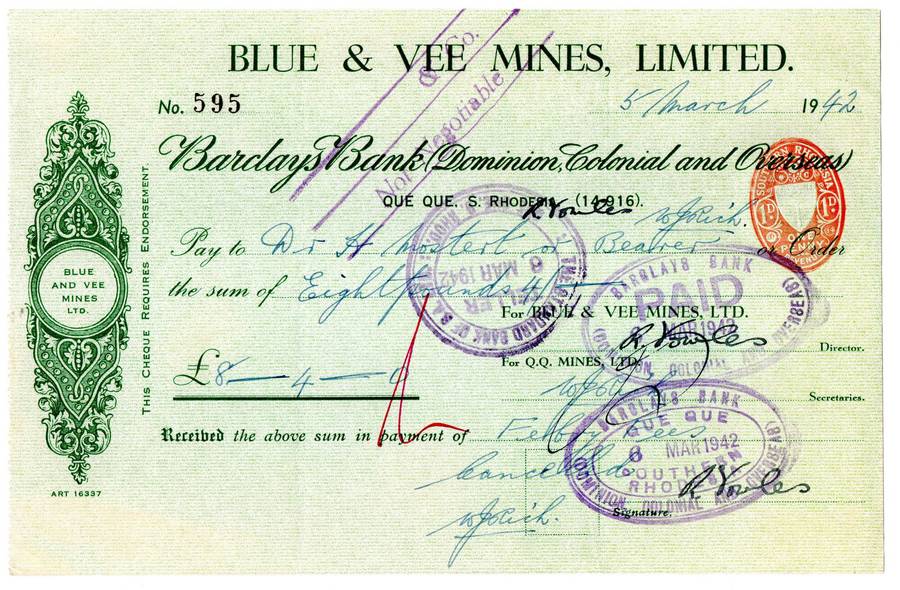 BLUE & VEE MINES, LIMITED.
& Co.
Not Negotiable
No. 595
5 March 1942
Barclays Bank (Dominion, Colonial and Overseas)
QUE QUE, S. RHODESIA (14-916).
SOUTHERN RHODESIA
1D 1D
ONE PENNY
REVENUE
R Vowles
WJRich.
Pay to Dr H Mostert or Bearer or Order
the sum of Eight pounds 4/-
THE STANDARD BANK OF S.A.
6 MAR 1942
TELLER
BARCLAYS BANK
PAID
MAR 1942
(DOMINION COLONIAL AND OVERSEAS)
For BLUE & VEE MINES, LTD.
R. Vowles
Director.
For Q.Q. MINES, LTD.
Secretaries.
£8 — 4 — 0
Received the above sum in payment of Feb'y Fees
Cancelled.
WJRich.
BARCLAYS BANK
QUE QUE
6 MAR 1942
SOUTHERN
RHODESIA
(DOMINION COLONIAL AND OVERSEAS)
R Vowles
Signature.
BLUE
AND VEE
MINES
LTD.
THIS CHEQUE REQUIRES ENDORSEMENT.
ART 16337